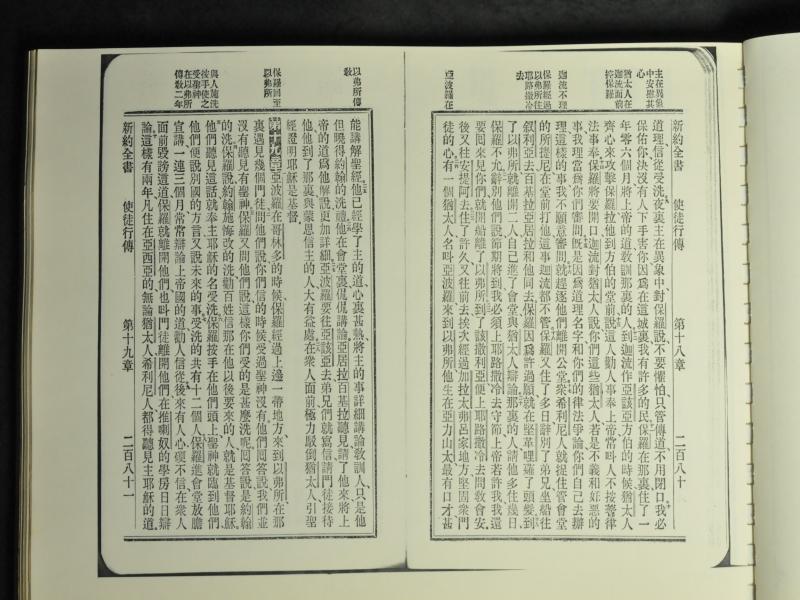 主在異象
中安慰其
心
猶太人在
迦流面前
控保羅
迦流不理
保羅經過
以弗所往
耶路撒冷
去
亞波羅在
新約全書 使徒行傳 第十八章 二百八十
道理信從受洗夜裏主在異象中對保羅說不要懼怕只管傳道不用閉口我必
保佑你決沒有人下手害你因爲在這城裏我有許多的民保羅在那裏住了一
年零六個月將上帝的道敎訓那裏的人到迦流作亞該亞方伯的時候猶太人
齊心來攻擊保羅拉他到方伯的堂前說這人勸人事奉上帝常呌人不按著律
法事奉保羅將要開口迦流對猶太人說你們這些猶太人若是不義和奸惡的
事我理當爲你們審問旣是因爲道理名字和你們的律法爭論你們自己去辦
理這樣的事我不願意審問就趕逐他們離開公堂衆希利尼人就捉住管會堂
的所提尼在堂前打他這事迦流都不管保羅又住了多日辭別了弟兄坐船往
叙利亞去百基拉亞居拉和他同去保羅因爲許過願就在堅革哩薙了頭髮到
了以弗所就離開二人自己進了會堂與猶太人辯論那裏的人請他多住幾日
保羅不允辭別他們說節期將到我必須上耶路撒冷去守節上帝若許我我還
要囘來見你們就開船離了以弗所到了該撒利亞便上耶路撒冷去問敎會安
後又往安提阿去住了許久又往前去挨次經過加拉太弗呂家地方堅固衆門
徒的心有一個猶太人名呌亞波羅來到以弗所他生在亞力山太最有口才甚
以弗所傳
敎
保羅囘至
以弗所
與人施洗
按手使之
受聖神
在以弗所
傳敎二年
能講解聖經他已經學了主的道心裏甚熱將主的事詳細講論敎訓人只是他
但曉得約翰的洗禮他在會堂裏侃侃講論亞居拉百基拉聽見請了他來將上
帝的道爲他解說更加詳細亞波羅要往亞該亞去弟兄們就寫信請門徒接待
他他到了那裏與蒙恩信主的人大有益處在衆人面前極力駁倒猶太人引聖
經證明耶穌是基督
第十九章 亞波羅在哥林多的時候保羅經過上邊一帶地方來到以弗所在那
裏遇見幾個門徒問他們說你們信的時候受過聖神沒有他們囘答說我們並
沒有聽見有聖神保羅又問他們說這樣你們受的是甚麼洗呢囘答說是約翰
的洗保羅說約翰施悔改的洗勸百姓信那在他以後要來的人就是基督耶穌
他們聽見這話就奉主耶穌的名受洗保羅按手在他們頭上聖神就臨到他們
他們便說別國的方言又說未來的事受洗的共有十二個人保羅進會堂放膽
宣講一連三個月常常辯論上帝國的道勸人信從後來有人心硬不信在衆人
面前毀謗這道保羅就離開他們也呌門徒離開他們在推喇奴的學房日日辯
論這樣有兩年凡住在亞西亞的無論猶太人希利尼人都得聽見主耶穌的道
新約全書 使徒行傳 第十九章 二百八十一